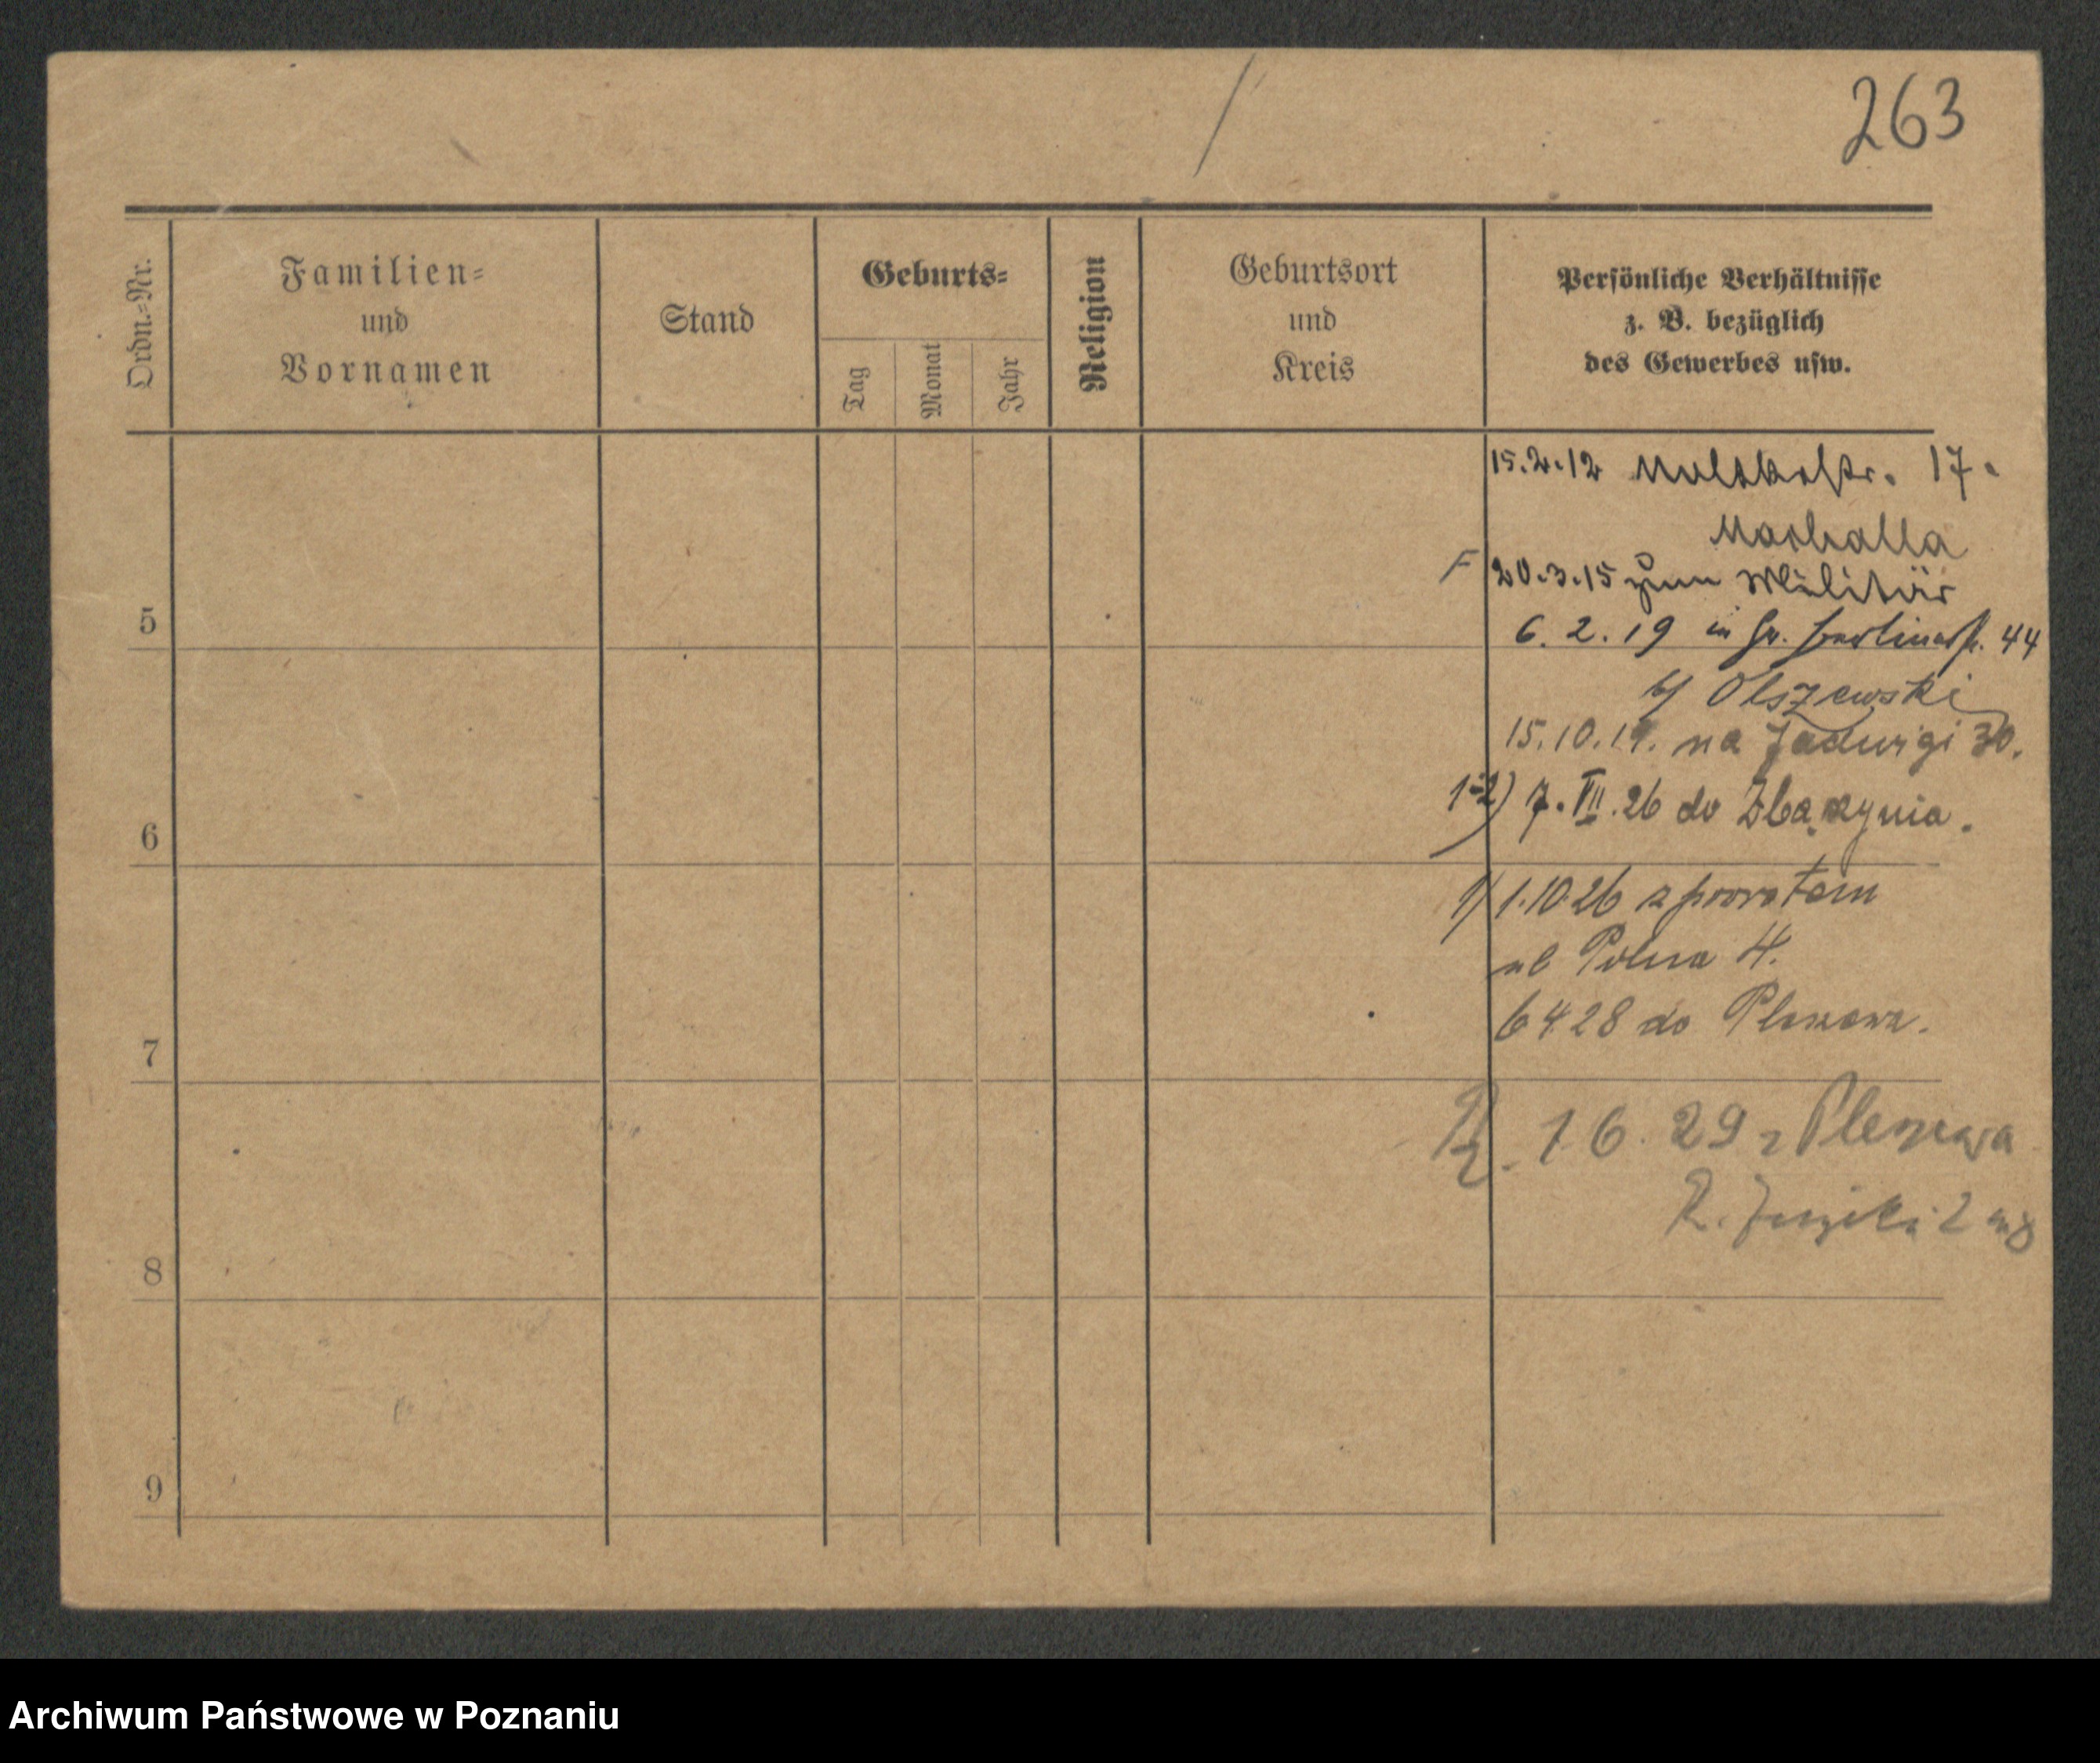 263
Ordn.-Nr.
Familien-
und
Vornamen
Stand
Geburts-
Tag
Monat
Jahr
Religion
Geburtsort
und
Kreis
Persönliche Verhältnisse
z. B. bezüglich
des Gewerbes usw.
15.2.12 Moltkestr. 17.
F 20.3.15 zum Militär
5
6. 2. 19 in Gr. Berlinerstr. 44
b/ Olszewski
15.10.19. na Jadwigi 30.
1-2) 7. VII. 26 do Zbąszynia.
6
1/ 1.10.26 z powrotem
ul Polna 4.
6 4 28 do Pleszewa.
7
1.6.29 z Pleszewa
8
9
Archiwum Państwowe w Poznaniu